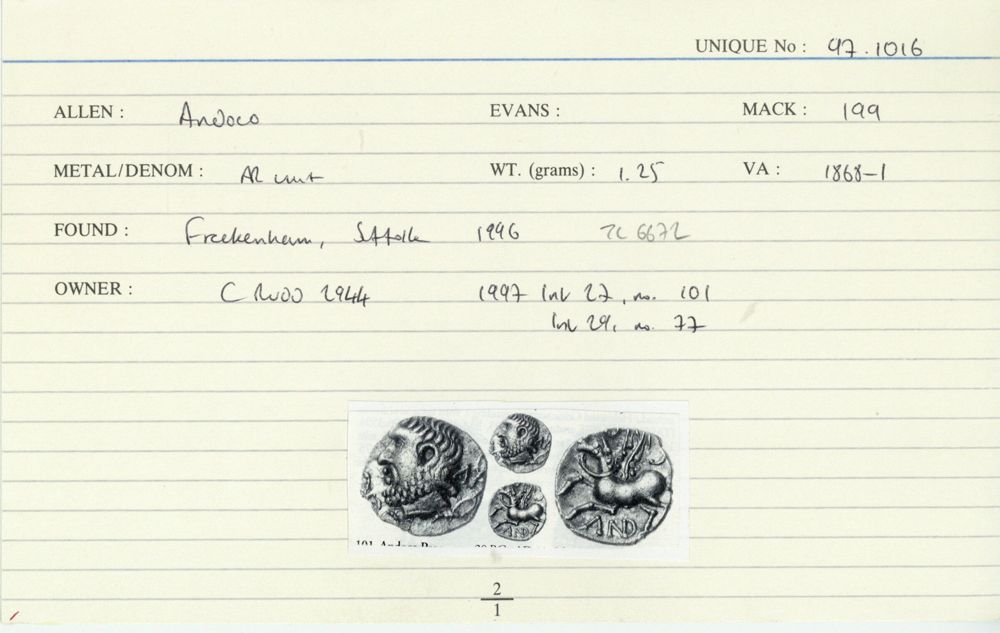 UNIQUE No : 97.1016
ALLEN : Andoco EVANS : MACK : 199
METAL/DENOM : AR unit WT. (grams) : 1.25 VA : 1868-1
FOUND : Freckenham, Suffolk 1996 TC 6672
OWNER : C RUDD 2944 1997 list 27, no. 101
list 29, no. 77
AND
2
1